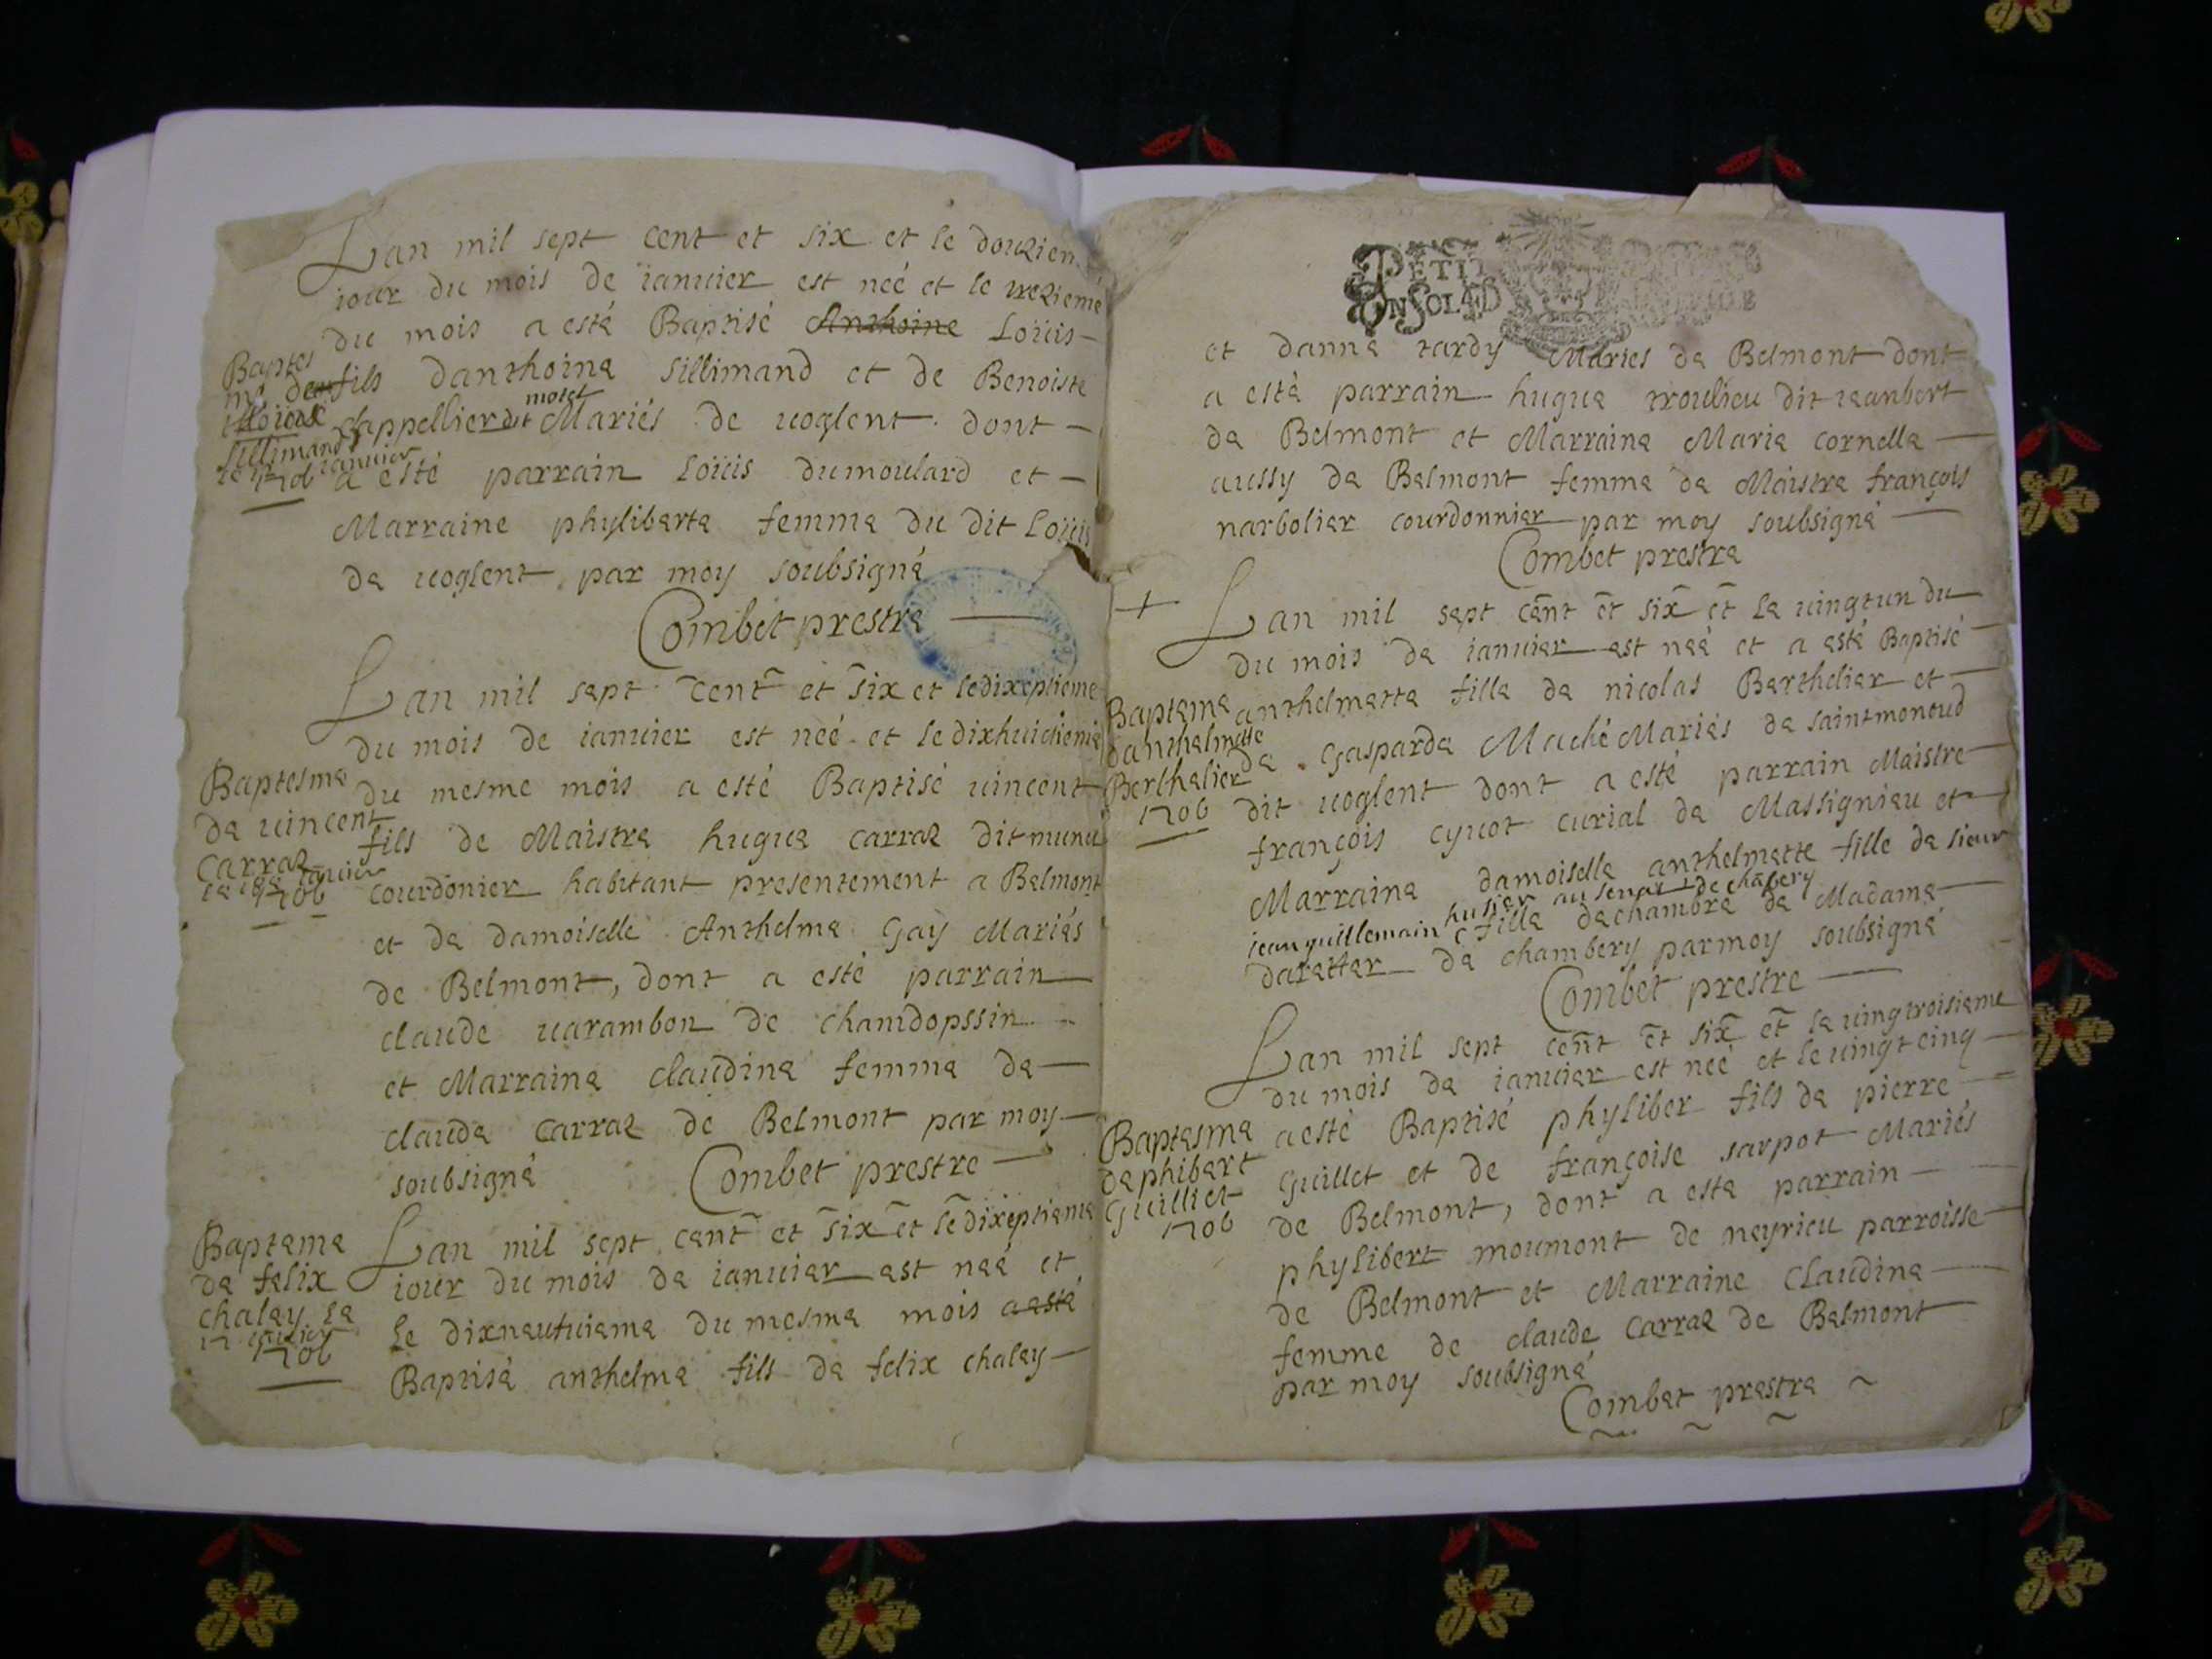 Lan mil sept cent et six et le douzieme
iour du mois de ianuier est neé et le trezieme
du mois a esté Baptisé Anthoine Loüis
Baptes
me de
Loüis
Sillimand
le 13 ianuier
1706
fils danthoine Sillimand et de Benoiste
dappellier dit motet Mariés de uoglent dont
a esté parrain Loüis dumoulard et
Marraine phyliberte femme du dit Loüis
de uoglent, par moy soubsigné
Combet prestre
Lan mil sept cent et six et le dixseptieme
du mois de ianuier est neé et le dixhuictieme
Baptesme
de uincent
Carraz
ianuier
1706
du mesme mois a esté Baptisé uincent
fils de Maistre hugue carraz dit munu
courdonier habitant presentement a Belmont
et de damoiselle Anthelme Gaÿ Mariés
de Belmont, dont a esté parrain
claude uarambon de chamdopssin
et Marraine claudine femme de
claude carraz de Belmont par moy
soubsigné Combet prestre
Bapteme
de felix
chaley le
17 ianuier
1706
Lan mil sept cent et six et le dixseptieme
iour du mois de ianuier est neé et
le dixneufuieme du mesme mois a esté
Baptisé anthelme fils de felix chaley
PETIT
UN SOL
et danne tardy Maries de Belmont dont
a esté parrain hugue troulieu dit ieanbert
de Belmont et Marraine Marie cornelle
aussy de Belmont femme de Maistre françois
narbolier courdonnier par moy soubsigné
Combet prestre
Lan mil sept cent et six et le uingtun du
du mois de ianuier est neé et a esté Baptisé
Bapteme
danthelmette
Berthelier
1706
anthelmette fille de nicolas Berthelier et
de Gasparde Maché Mariés de saint
dit uoglent dont a esté parrain Maistre
françois cyuot curial de Massignieu et
Marraine damoiselle anthelmette fille de sieur
iean guillemain husier au senat de chãbery
fille dechambre de Madame
de chambery par moy soubsigné
Combet prestre
Lan mil sept cent et six et le uingtroisieme
du mois de ianuier est neé et le uingtcinq
Baptesme
de phibert
Guilliet
1706
a esté Baptisé phyliber fils de pierre
Guillet et de françoise sarpot Mariés
de Belmont, dont a esté parrain
phylibert moumont de neyrieu parroisse
de Belmont et Marraine Claudine
femme de claude carraz de Belmont
par moy soubsigné
Combet prestre